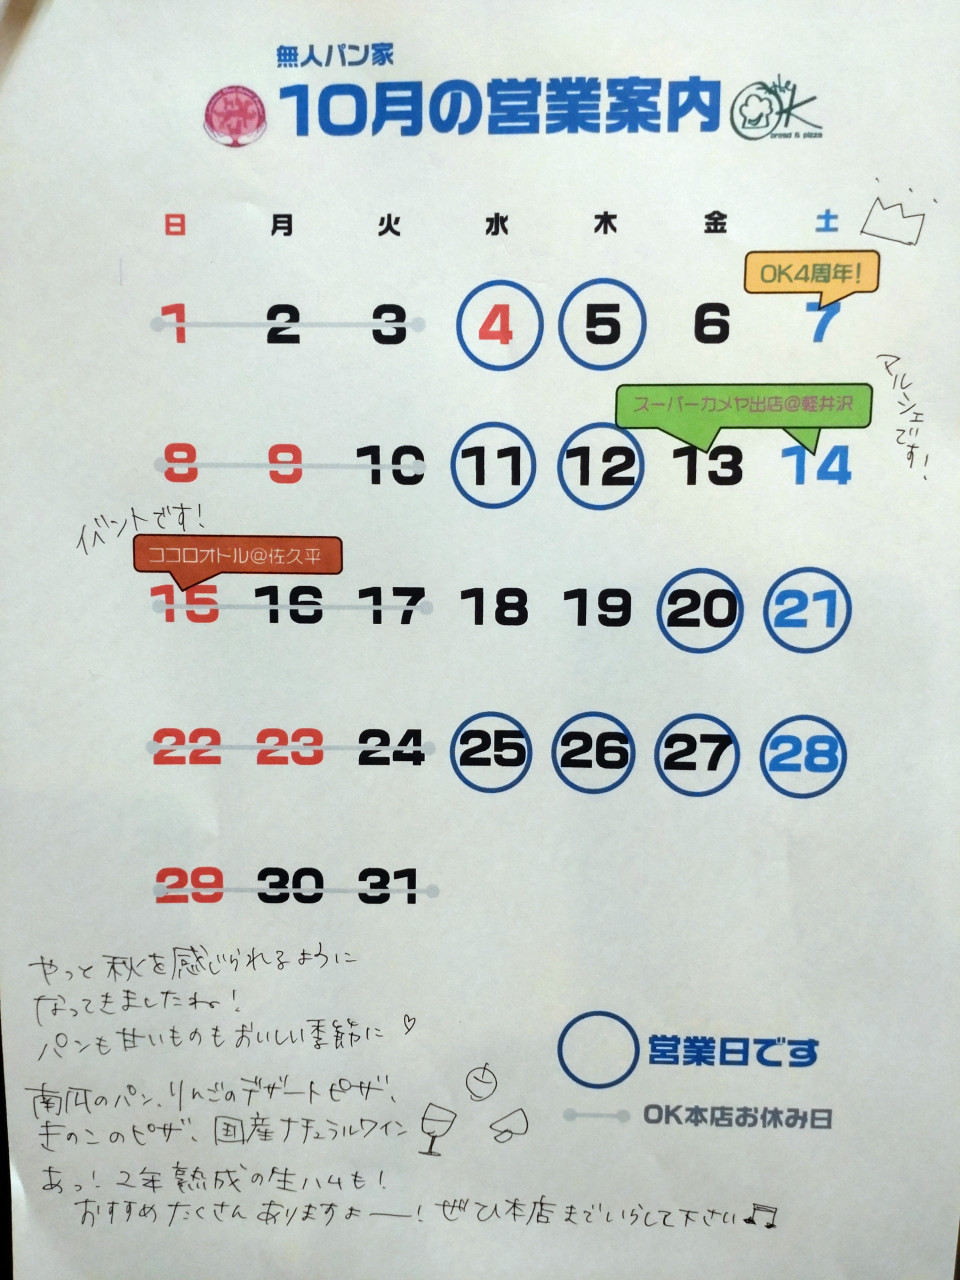 無人パン家
10月の営業案内
the OK
bread & pizza
日 月 火 水 木 金 土
OK4周年!
1 2 3 4 5 6 7
マルシェです!
スーパーカメヤ出店@軽井沢
8 9 10 11 12 13 14
イベントです!
ココロオドル@佐久平
15 16 17 18 19 20 21
22 23 24 25 26 27 28
29 30 31
やっと秋を感じられるように
なってきましたね!
パンも甘いものもおいしい季節に♡
南瓜のパン、りんごのデザートピザ、
きのこのピザ、国産ナチュラルワイン
あっ!2年熟成の生ハムも!
おすすめたくさんありますよー!ぜひ本店までいらして下さい♫
営業日です
OK本店お休み日